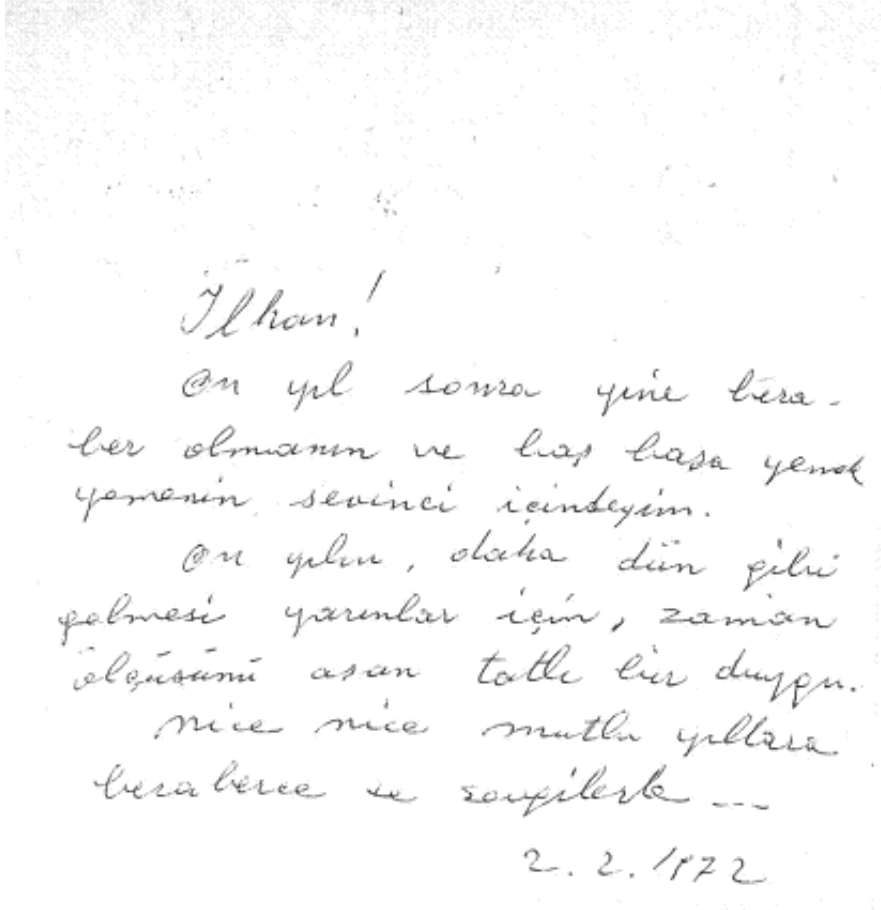 İlhan!
On yıl sonra yine bera-
ber olmanın ve baş başa yemek
yemenin sevinci içindeyim.
On yılın, daha dün gibi
gelmesi yarınlar için, zaman
ölçüsünü aşan tatlı bir duygu.
Nice nice mutlu yıllara
beraberce ve sevgilerle ---
2.2.1972